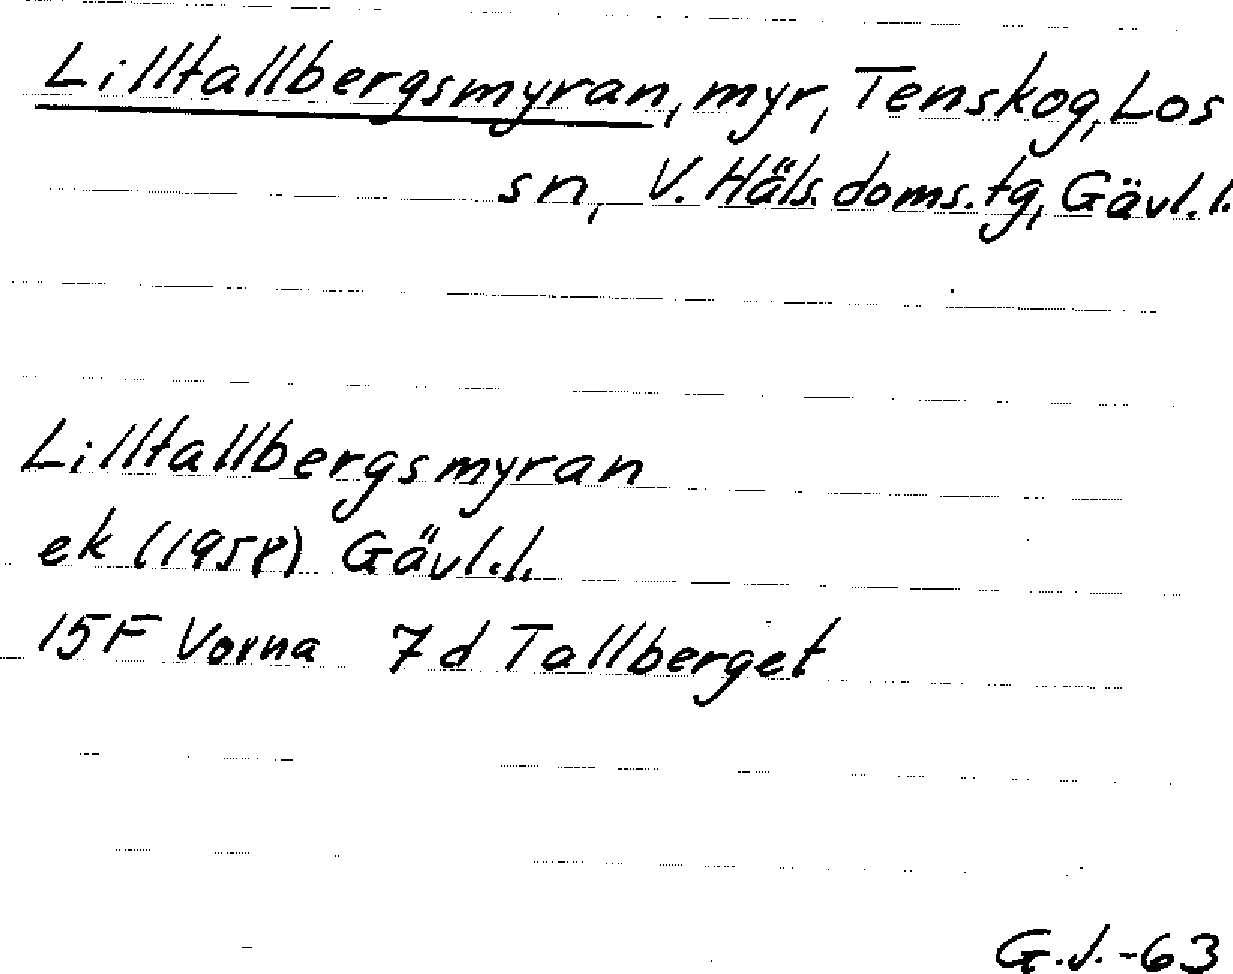 Lilltallbergsmyran, myr, Tenskog, Los
sn, V. Häls. doms. tg, Gävl. l.
Lilltallbergsmyran
ek (1958) Gävl. l.
15F Vorna 7d Tallberget
G.J.-63